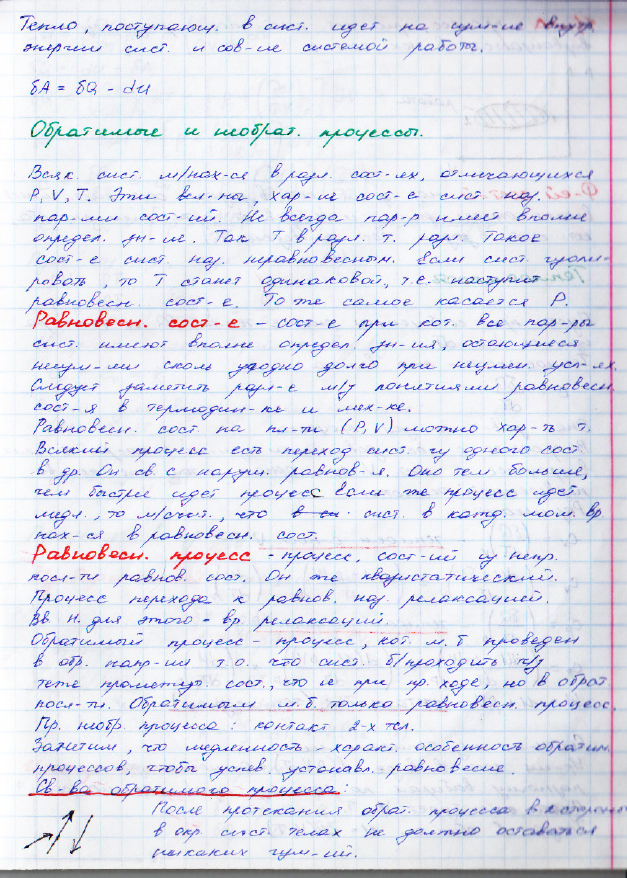 Тепло, поступающ. в сист. идет на изм-ие внутр.
энергии сист. и сов-ие системой работы.
δA = δQ - dU
Обратимые и необрат. процессы.
Всяк. сист. м/нах-ся в разл. сост-ях, отличающихся
P, V, T. Эти вел-ны, хар-ие сост-е сист. наз.
пар-ми сост-ий. Не всегда пар-р имеет вполне
определ. зн-ие. Так T в разл. т. разл. Такое
сост-е сист. наз. неравновесным. Если сист. изоли-
ровать, то T станет одинаковой, т.е. наступит
равновесн. сост-е. То же самое касается P.
Равновесн. сост-е - сост-е при кот. все пар-ры
сист. имеют вполне определ. зн-ия, остающиеся
неизм-ми сколь угодно долго при неизмен. усл-ях.
Следует заметить разл-е м/у понятиями равновесн.
сост-я в термодин-ке и мех-ке.
Равновесн. сост. на пл-ти (P,V) можно хар-ть т.
Всякий процесс есть переход сист. из одного сост.
в др. Он св. с наруш. равнов-я. Оно тем больше,
чем быстрее идет процесс. Если же процесс идет
медл., то м/счит., что сист. в кажд. мом. вр.
нах-ся в равновесн. сост.
Равновесн. процесс - процесс, сост-ий из непр.
посл-ти равнов. сост. Он же квазистатический.
Процесс перехода к равнов. наз. релаксацией.
Вр. н. для этого - вр. релаксации.
Обратимый процесс - процесс, кот. м.б. проведен
в обр. напр-ии т.о. что сист. б/проходить ч/з
теже промежут. сост., что и при пр. ходе, но в обрат.
посл-ти. Обратимым м.б. только равновесн. процесс.
Пр. необр. процесса: контакт 2-х тел.
Заметим, что медленность - характ. особенность обратим.
процессов, чтобы успев. устанавл. равновесие.
Св-ва обратимого процесса:
После протекания обрат. процесса в стороны
в окр. сист. телах не должно оставаться
никаких изм-ий.